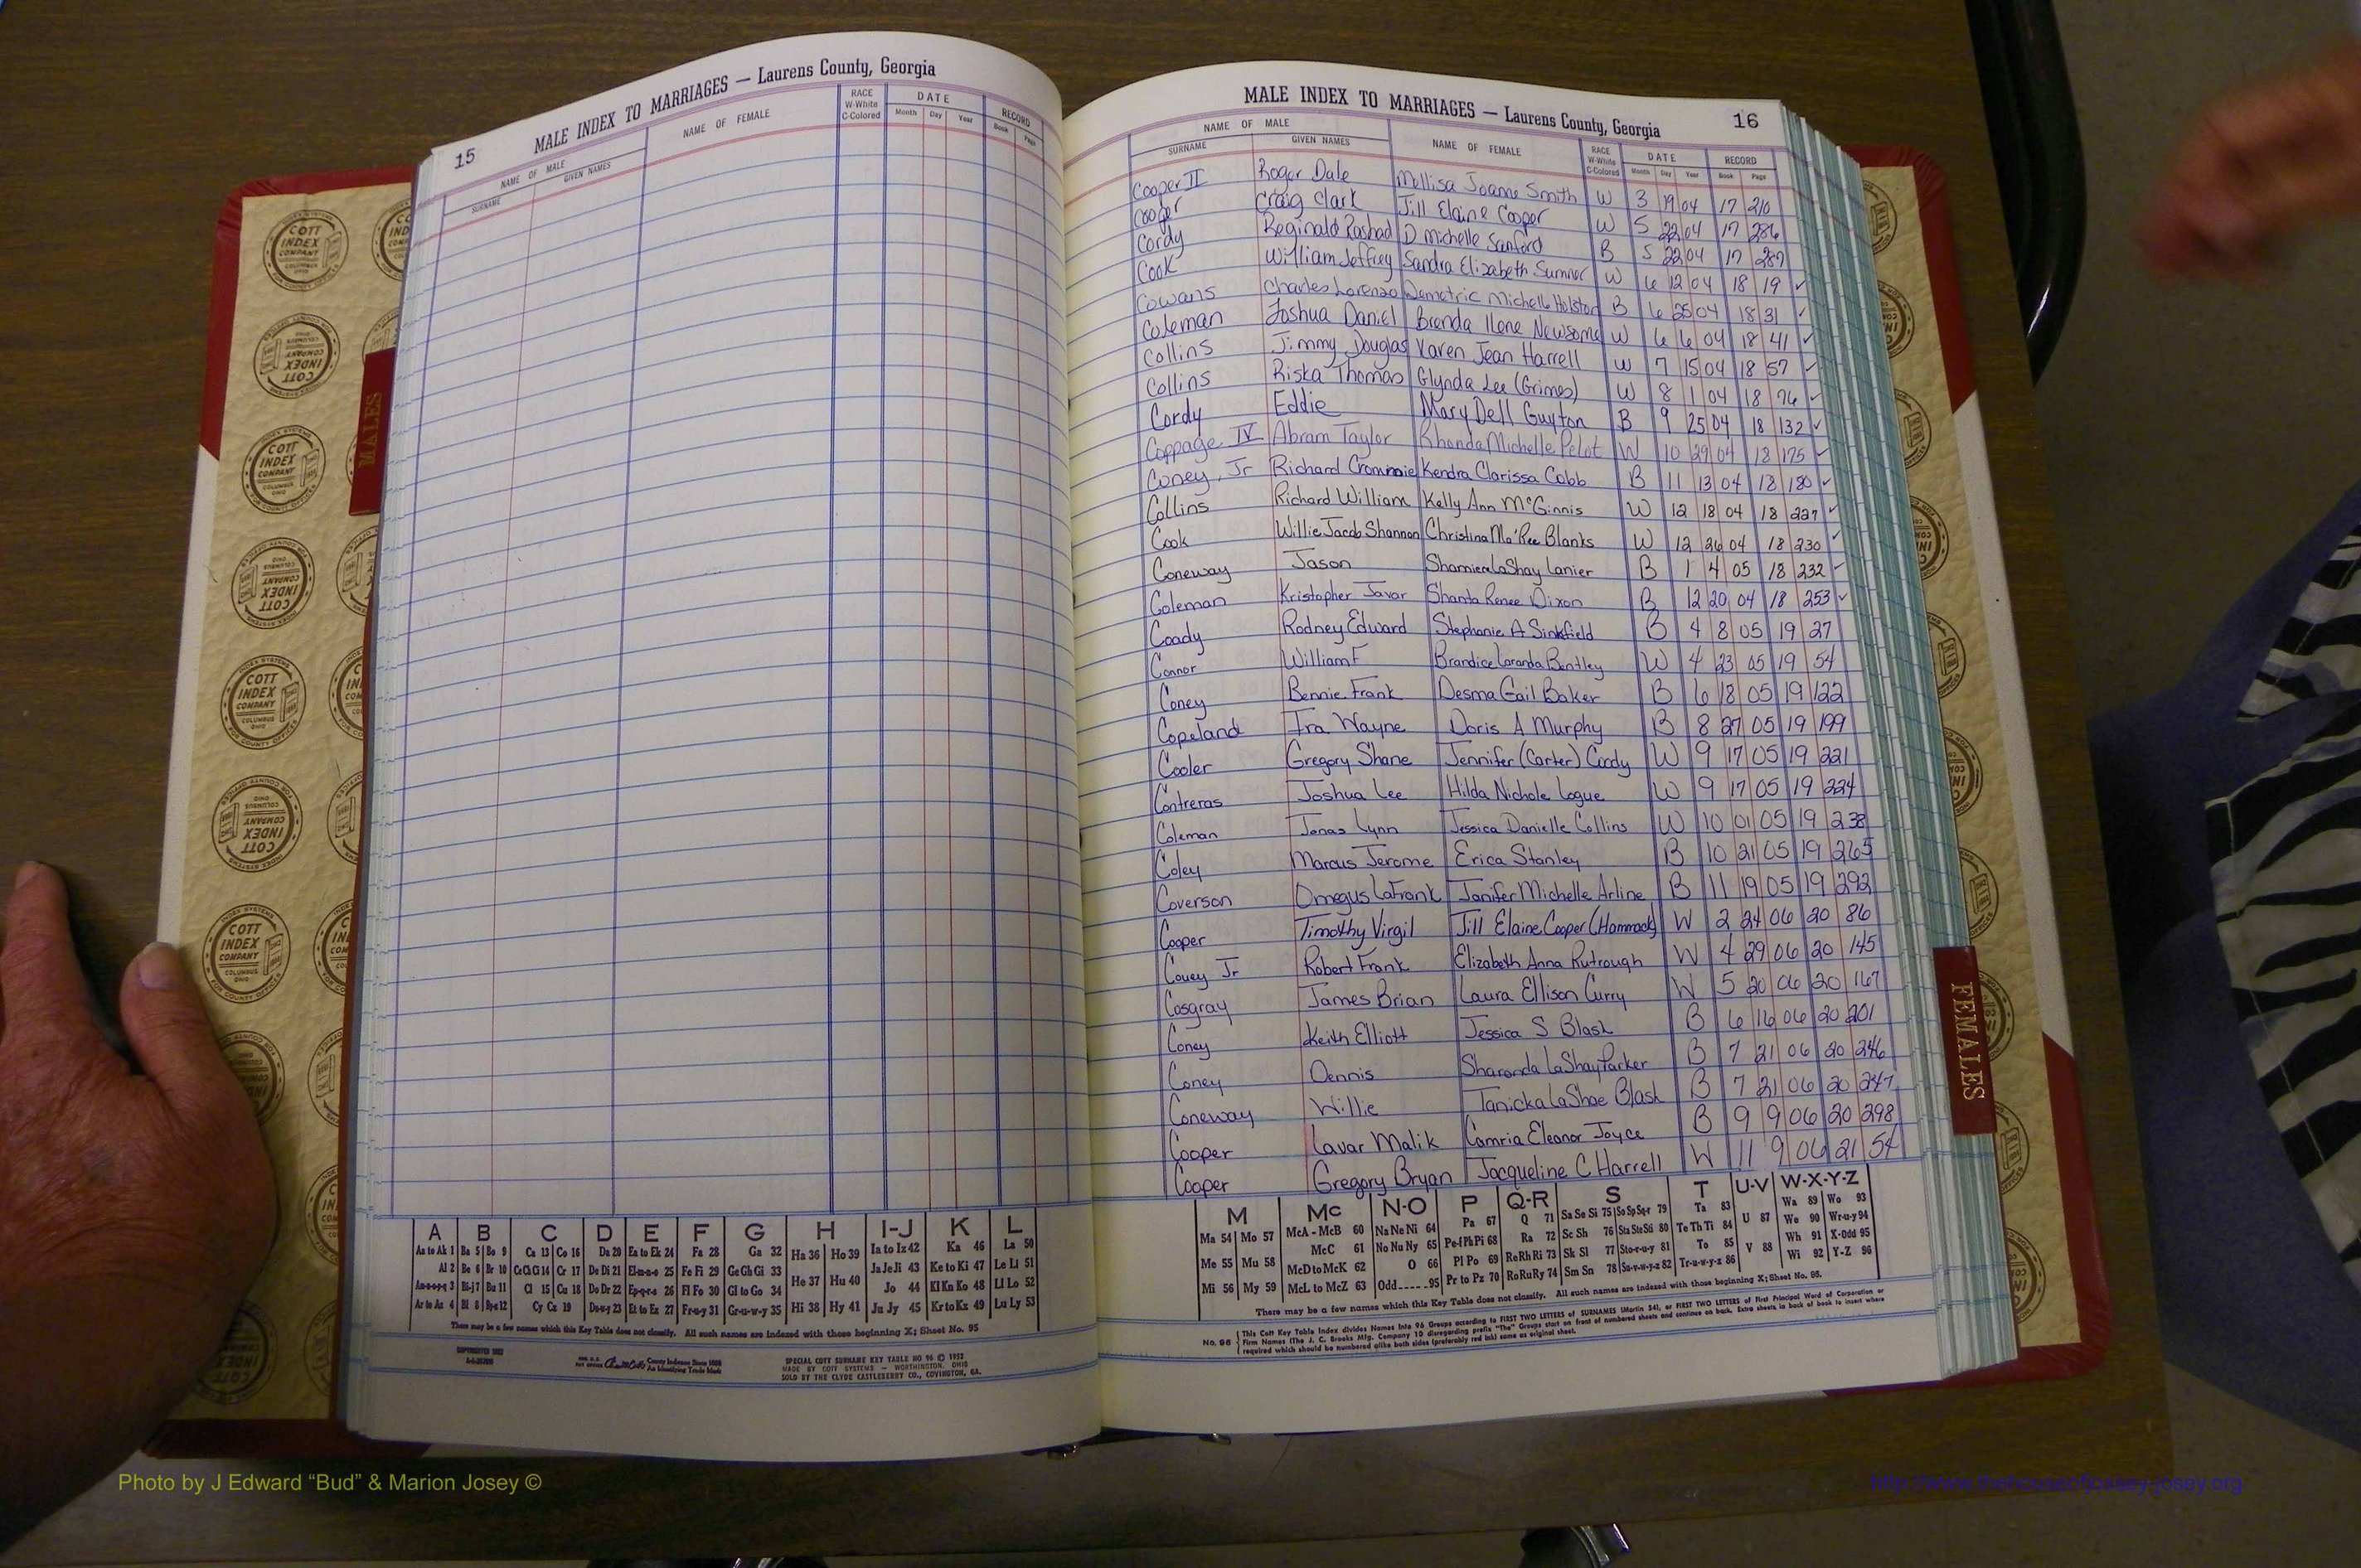 15 MALE INDEX TO MARRIAGES — Laurens County, Georgia
NAME OF MALE NAME OF FEMALE RACE W-White C-Colored DATE RECORD
SURNAME GIVEN NAMES Month Day Year Book Page
MALE INDEX TO MARRIAGES — Laurens County, Georgia 16
NAME OF MALE NAME OF FEMALE RACE W-White C-Colored DATE RECORD
SURNAME GIVEN NAMES Month Day Year Book Page
Cooper II Roger Dale Mellisa Joanne Smith W 3 19 04 17 210
Cooper Craig Clark Jill Elaine Cooper W 5 22 04 17 286
Cordy Reginald Rashad D Michelle Sanford B 5 22 04 17 287
Cook William Jeffrey Sandra Elizabeth Sumner W 6 12 04 18 19 ✓
Cowans Charles Lorenzo Demetric Michelle Holston B 6 25 04 18 31 ✓
Coleman Joshua Daniel Brenda Ilene Newsome W 6 6 04 18 41 ✓
Collins Jimmy Douglas Karen Jean Harrell W 7 15 04 18 57 ✓
Collins Riska Thomas Glynda Lee (Grimes) W 8 1 04 18 76 ✓
Cordy Eddie Mary Dell Guyton B 9 25 04 18 132 ✓
Coppage IV Abram Taylor Rhonda Michelle Pelot W 10 29 04 18 175 ✓
Coney, Jr Richard Crommie Kendra Clarissa Cobb B 11 13 04 18 180 ✓
Collins Richard William Kelly Ann McGinnis W 12 18 04 18 227 ✓
Cook Willie Jacob Shannon Christina Ma'Ree Blanks W 12 26 04 18 230 ✓
Coneway Jason Shamiece LaShay Lanier B 1 4 05 18 232 ✓
Coleman Kristopher Javar Shanta Renee Dixon B 12 20 04 18 253 ✓
Coady Rodney Edward Stephanie A Sinkfield B 4 8 05 19 27
Connor William F Brandice Laranda Bentley W 4 23 05 19 54
Coney Bennie Frank Desma Gail Baker B 6 18 05 19 122
Copeland Ira Wayne Doris A Murphy B 8 27 05 19 199
Cooler Gregory Shane Jennifer (Carter) Cordy W 9 17 05 19 221
Contreras Joshua Lee Hilda Nichole Logue W 9 17 05 19 224
Coleman Jonas Lynn Jessica Danielle Collins W 10 01 05 19 238
Coley Marcus Jerome Erica Stanley B 10 21 05 19 265
Coverson Omegus LaFrank Janifer Michelle Arline B 11 19 05 19 292
Cooper Timothy Virgil Jill Elaine Cooper (Hammock) W 2 24 06 20 86
Couey Jr Robert Frank Elizabeth Anna Rutrough W 4 29 06 20 145
Cosgray James Brian Laura Ellison Curry W 5 20 06 20 167
Coney Keith Elliott Jessica S Blash B 6 16 06 20 201
Coney Dennis Sharonda LaShay Parker B 7 21 06 20 246
Coneway Willie Tanicka LaShae Blash B 7 21 06 20 247
Cooper Lavar Malik Camria Eleanor Joyce B 9 9 06 20 298
Cooper Gregory Bryan Jacqueline C Harrell W 11 9 06 21 54
A B C D E F G H I-J K L
Aa to Ak 1 Ba 5 Bo 9 Ca 13 Co 16 Da 20 Ea to Ek 24 Fa 28 Ga 32 Ha 36 Ho 39 Ia to Iz 42 Ka 46 La 50
Al 2 Be 6 Br 10 Ce Ch Ci 14 Cr 17 De Di 21 El-m-n-o 25 Fe Fi 29 Ge Gh Gi 33 He 37 Hu 40 Ja Je Ji 43 Ke to Ki 47 Le Li 51
Am-n-o-p-q 3 Bi-j 7 Bu 11 Cl 15 Cu 18 Do Dr 22 Ep-q-r-s 26 Fl Fo 30 Gl to Go 34 Jo 44 Kl Kn Ko 48 Ll Lo 52
Ar to Az 4 Bl 8 By-z 12 Cy Cz 19 Du-w-y 23 Et to Ez 27 Fr-u-y 31 Gr-u-w-y 35 Hi 38 Hy 41 Ju Jy 45 Kr to Kz 49 Lu Ly 53
There may be a few names which this Key Table does not classify. All such names are indexed with those beginning X; Sheet No. 95
County Indexes Since 1888
An Identifying Trade Mark
SPECIAL COTT SURNAME KEY TABLE NO 96 © 1952
MADE BY COTT SYSTEMS — WORTHINGTON, OHIO
SOLD BY THE CLYDE CASTLEBERRY CO., COVINGTON, GA.
M Mc N-O P Q-R S T U-V W-X-Y-Z
Ma 54 Mo 57 McA - McB 60 Na Ne Ni 64 Pa 67 Q 71 Sa Se Si 75 So Sp Sq-r 79 Ta 83 U 87 Wa 89 Wo 93
Me 55 Mu 58 McC 61 No Nu Ny 65 Pe-f Ph Pi 68 Ra 72 Sc Sh 76 Sta Ste Sti 80 Te Th Ti 84 We 90 Wr-u-y 94
McD to McK 62 O 66 Pl Po 69 Re Rh Ri 73 Sk Sl 77 Sto-r-u-y 81 To 85 V 88 Wh 91 X-Odd 95
Mi 56 My 59 McL to McZ 63 Odd-----95 Pr to Pz 70 Ro Ru Ry 74 Sm Sn 78 Su-v-w-y-z 82 Tr-u-w-y-z 86 Wi 92 Y-Z 96
There may be a few names which this Key Table does not classify. All such names are indexed with those beginning X; Sheet No. 95.
No. 96 This Cott Key Table Index divides Names Into 96 Groups according to FIRST TWO LETTERS of SURNAMES (Martin 54), or FIRST TWO LETTERS of First Principal Word of Corporation or
Firm Names (The J. C. Brooks Mfg. Company 10 disregarding prefix "The" Groups start on front of numbered sheets and continue on back. Extra sheets in back of book to insert where
required which should be numbered alike both sides (preferably red ink) same as original sheet.
MALES
FEMALES
COTT INDEX COMPANY COLUMBUS OHIO
INDEX SYSTEMS FOR COUNTY OFFICES
Photo by J Edward “Bud” & Marion Josey ©
http://www.thehouseofjossey-josey.org